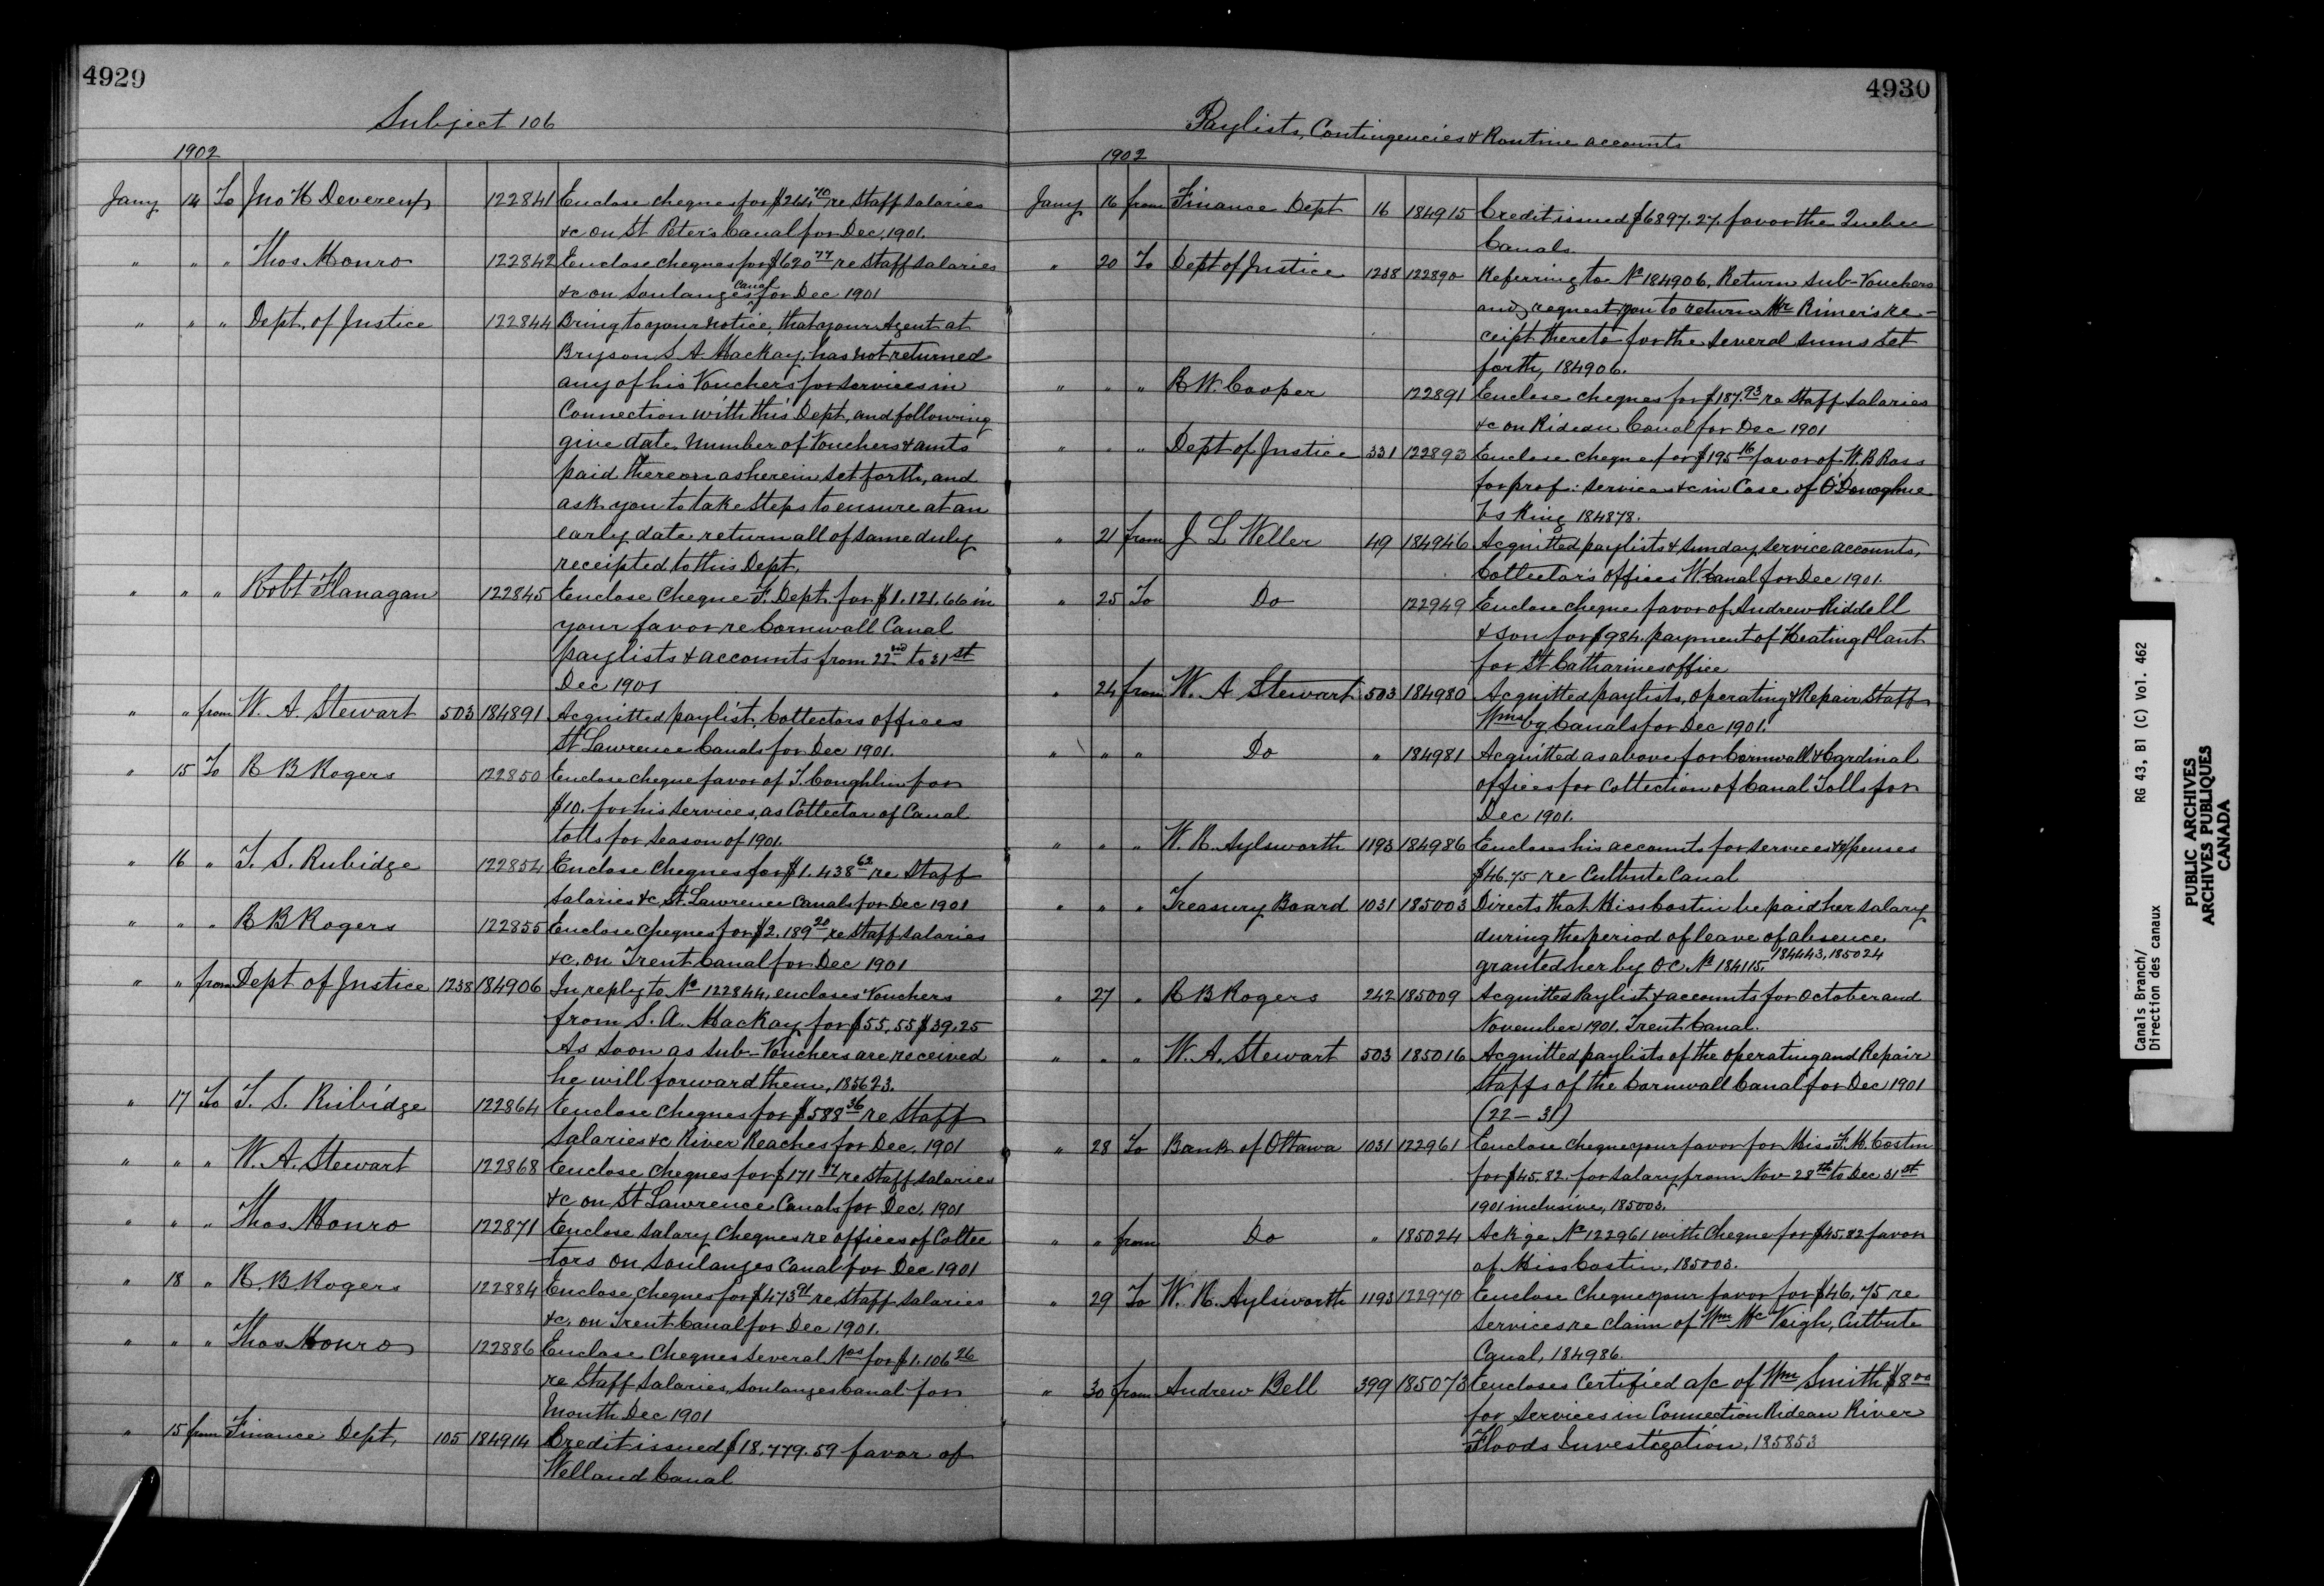 4929
Subject 106
1902
Jany 14 To Jno H Devereux 122841 Enclose cheques for $244.70 re Staff salaries
&c on St Peter's Canal for Dec, 1901.
" " " Thos. Monro 122842 Enclose cheques for $620.77 re Staff salaries
&c on Soulanges Canal for Dec 1901
" " " Dept. of Justice 122844 Bring to your notice, that your Agent at
Bryson S. A. Mackay, has not returned
any of his Vouchers for services in
Connection with this Dept, and following
give date, number of Vouchers & amts
paid thereon as herein set forth, and
ask you to take steps to ensure at an
early date return all of same duly
receipted to this Dept.
" " " Robt Flanagan 122845 Enclose Cheque F. Dept. for $1.121.66 in
your favor re Cornwall Canal
paylists & accounts from 22nd to 31st
Dec 1901
" " from W. A. Stewart 503 184891 Acquitted paylist, Collectors offices
St Lawrence Canals for Dec 1901.
" 15 To R B Rogers 122850 Enclose cheque favor of T. Coughlin for
$10. for his services, as Collector of Canal
tolls for season of 1901.
" 16 " T. S. Rubidge 122854 Enclose cheques for $1.438.62 re Staff
salaries &c, St. Lawrence Canals for Dec 1901
" " " R B Rogers 122855 Enclose cheques for $2.189.20 re Staff salaries
&c. on Trent Canal for Dec 1901
" " from Dept of Justice 1238 184906 In reply to No 122844, encloses Vouchers
from S. A. Mackay for $55.55 $39.25
As soon as sub-Vouchers are received
he will forward them, 185623.
" 17 To T. S. Rubidge 122864 Enclose cheques for $588.36 re Staff
Salaries &c River Reaches for Dec. 1901
" " " W. A. Stewart 122868 Enclose cheques for $171.17 re Staff salaries
&c on St Lawrence Canals for Dec. 1901
" " " Thos. Monro 122871 Enclose salary cheques re offices of Collec
tors on Soulanges Canal for Dec 1901
" 18 " R. B. Rogers 122884 Enclose cheques for $473.91 re Staff salaries
&c. on Trent Canal for Dec 1901.
" " " Thos Monro 122886 Enclose Cheques several Nos for $1.106.26
re Staff salaries, Soulanges Canal for
Month Dec 1901
" 15 from Finance Dept. 105 184914 Credit issued $18,779.59 favor of
Welland Canal
4930
Paylists, Contingencies & Routine accounts
1902
Jany 16 from Finance Dept 16 184915 Credit issued $6897.27. favor the Quebec
Canals
" 20 To Dept of Justice 1238 122890 Referring to No 184906, Return sub-Vouchers
and request you to return Mr Rimer's re-
ceipt thereto for the several sums set
forth, 184906.
" " " R W. Cooper 122891 Enclose cheques for $187.93 re Staff salaries
&c on Rideau Canal for Dec 1901
" " " Dept of Justice 331 122893 Enclose cheque for $195.16 favor of W. B Ross
for prof: services &c in Case of O'Donoghue
vs King 184878.
" 21 from J L Weller 49 184946 Acquitted paylists & Sunday service accounts,
Collector's offices W. Canal for Dec 1901.
" 25 To Do 122949 Enclose cheque favor of Andrew Riddell
& Son for $984. payment of Heating Plant
for St Catharines office
" 24 from W. A Stewart 503 184980 Acquitted paylists, operating & Repair Staff
Wmsbg Canals for Dec 1901.
" " " Do " 184981 Acquitted as above for Cornwall & Cardinal
offices for collection of Canal Tolls for
Dec 1901.
" " " W. R. Aylsworth 1193 184986 Encloses his accounts for services & expenses
$46.75 re Culbute Canal
" " " Treasury Board 1031 185003 Directs that Miss Costin be paid her salary
during the period of leave of absence
granted her by O.C. No 184115, 184443, 185024
" 27 " R B Rogers 242 185009 Acquitted Paylist & accounts for October and
November 1901. Trent Canal.
" " " W. A. Stewart 503 185016 Acquitted paylists of the operating and Repair
Staffs of the Cornwall Canal for Dec 1901
(22 – 31)
" 28 To Bank of Ottawa 1031 122961 Enclose cheque your favor for Miss F. M. Costin
for $45.82. for salary from Nov 28th to Dec 31st
1901 inclusive, 185003.
" " from Do " 185024 Ackge No 122961 with cheque for $45.82 favor
of Miss Costin, 185003.
" 29 To W. R. Aylsworth 1193 122970 Enclose cheque your favor for $46.75 re
Services re claim of Wm McVeigh, Culbute
Canal, 184986.
" 30 from Andrew Bell 399 185073 Encloses Certified a/c of Wm Smith $8.00
for Services in Connection Rideau River
Floods Investigation, 185853
Canals Branch/
Direction des canaux
RG 43, B1 (C) Vol. 462
PUBLIC ARCHIVES
ARCHIVES PUBLIQUES
CANADA